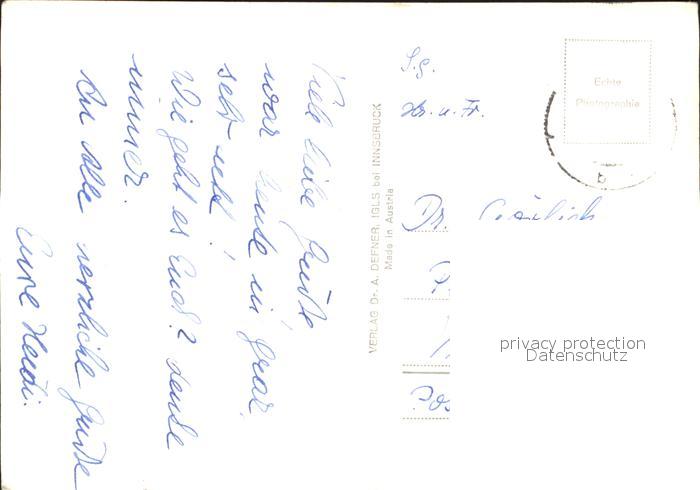 Viele liebe Grüße
war heute in Graz.
sehr nett!
Wie geht es Euch? denke
immer.
An alle herzliche Grüße
Eure Heidi.
VERLAG Dr. A. DEFNER, IGLS bei INNSBRUCK
Made in Austria
S.g.
Hr. u. Fr.
Dr.
Echte
Photographie
b
privacy protection
Datenschutz